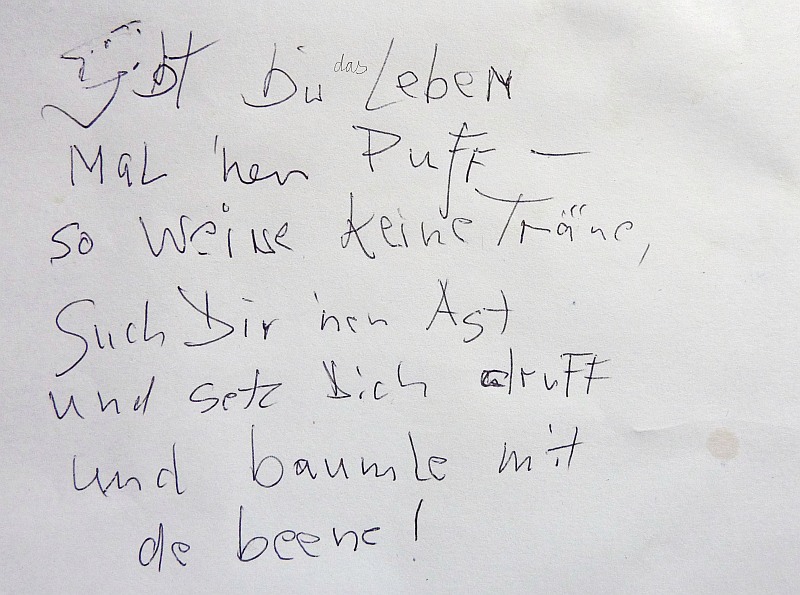 Gibt Dir das Leben
Mal 'nen Puff –
so weine keine Träne,
Such Dir 'nen Ast
und setz Dich druff
und baumle mit
de beene!